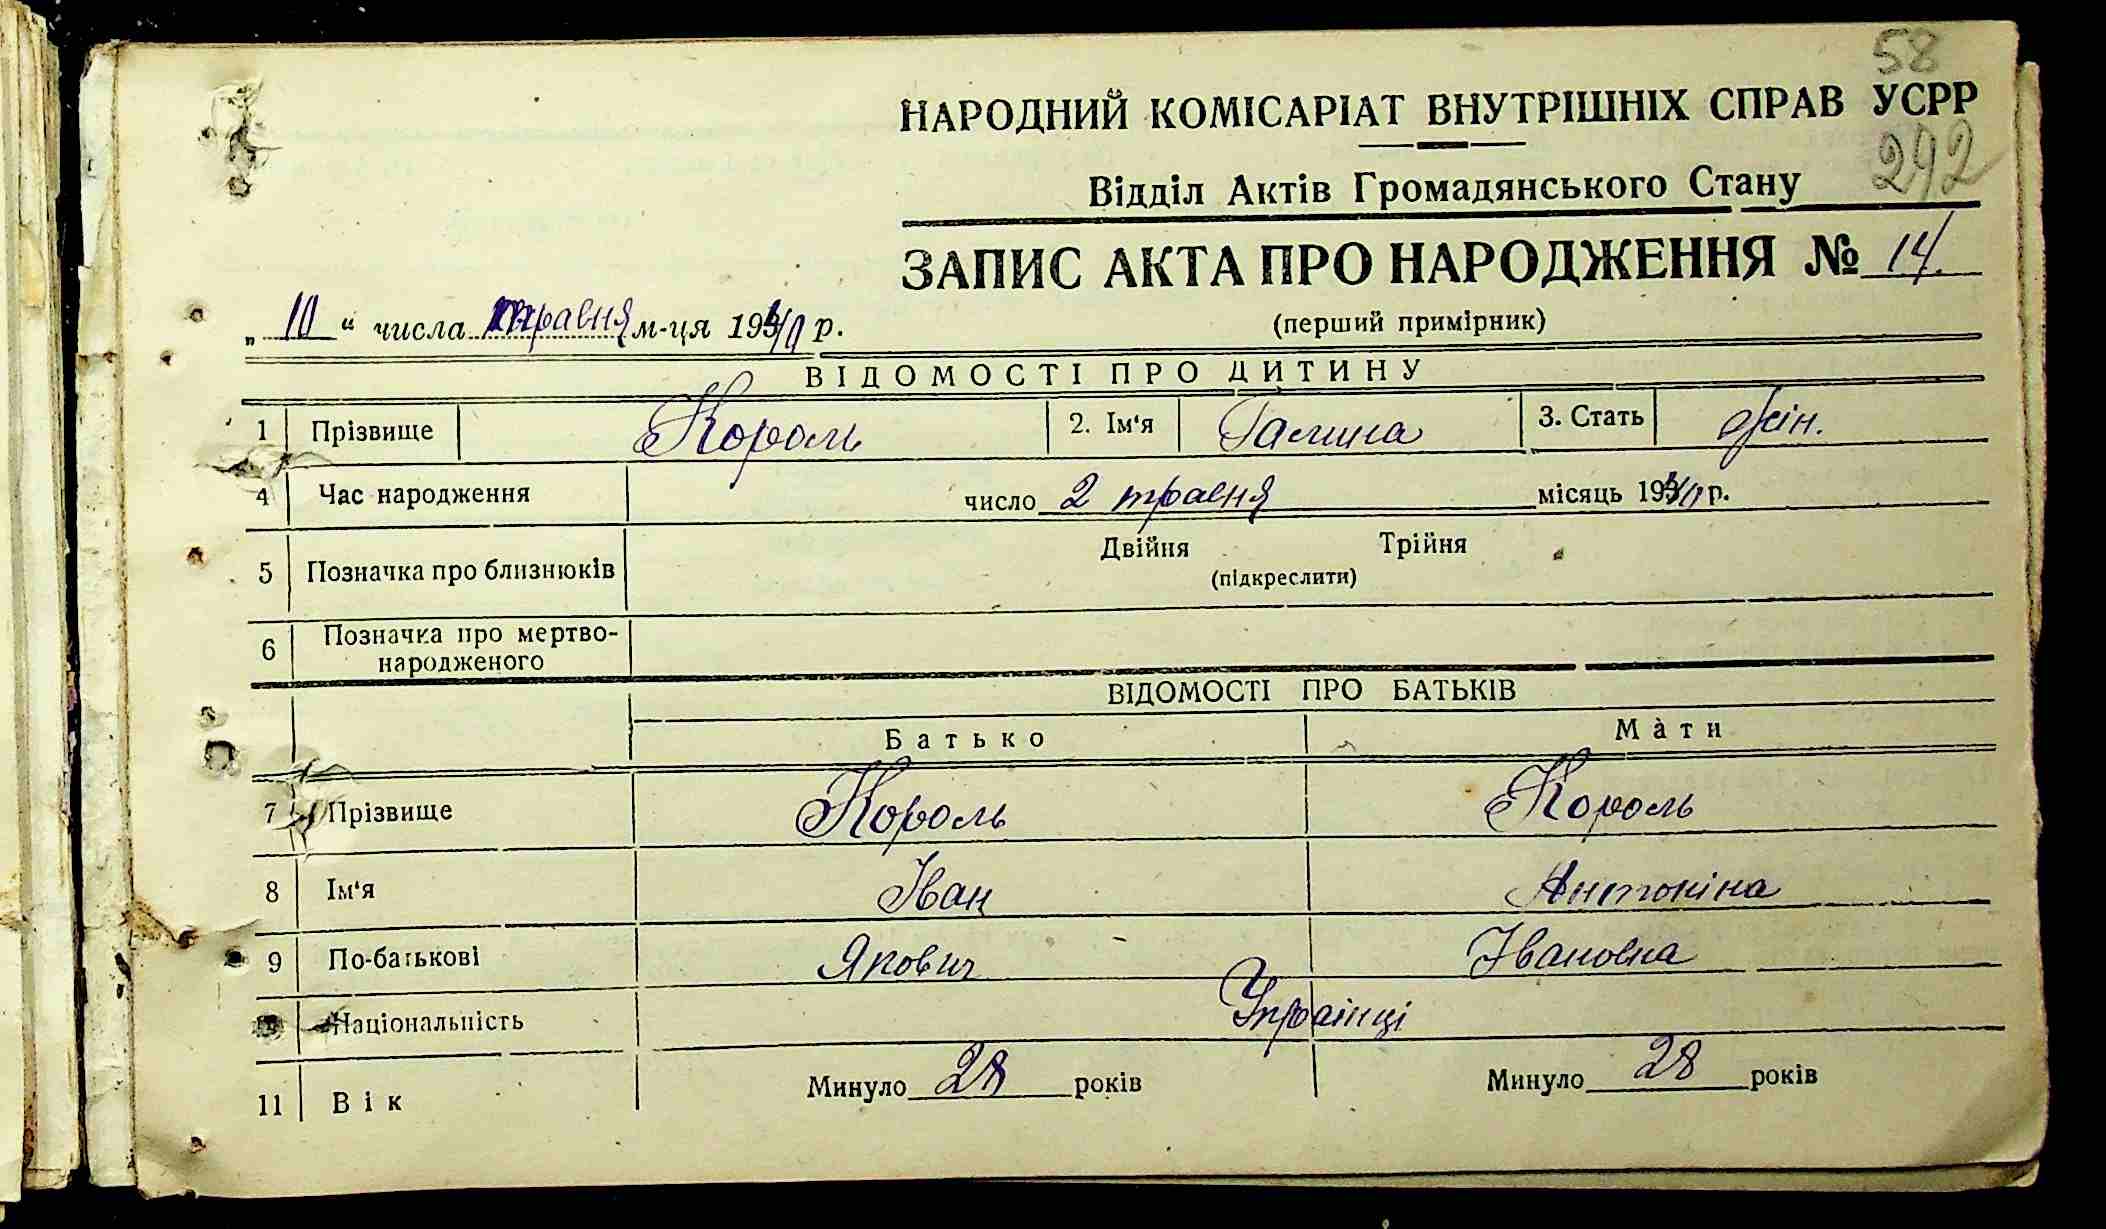 58
НАРОДНИЙ КОМІСАРІАТ ВНУТРІШНІХ СПРАВ УСРР
292
Відділ Актів Громадянського Стану
ЗАПИС АКТА ПРО НАРОДЖЕННЯ № 14.
„ 10 “ числа травня м-ця 1940 р.
(перший примірник)
ВІДОМОСТІ ПРО ДИТИНУ
1 Прізвище Король 2. Ім‘я Галина 3. Стать жін.
4 Час народження число 2 травня місяць 1940 р.
5 Позначка про близнюків Двійня Трійня
(підкреслити)
6 Позначка про мертво-
народженого
ВІДОМОСТІ ПРО БАТЬКІВ
Батько Мати
7 Прізвище Король Король
8 Ім‘я Іван Антоніна
9 По-батькові Якович Івановна
Національність Українці
11 Вік Минуло 28 років Минуло 28 років